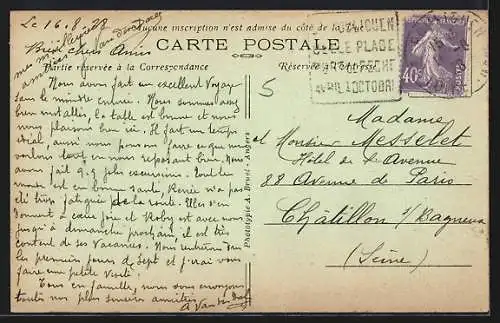 Le 16.8.28
Aucune inscription n'est admise du côté de la
CARTE POSTALE
Partie réservée à la Correspondance
Réservé à
chers Amis
Nous avons fait un excellent Voyage
sans le moindre ennui. Nous sommes
bien installés, la table est bonne et nous
nous plaisons bien ici. Il fait un temps
idéal, aussi nous pouvons faire ce que nous
voulons tout en nous reposant bien. Nous
avons fait q.q jolies excursions. Tout le
monde est en bonne santé, Renée n'a pas
été trop fatiguée de la route. Elles s'en
donnent à cœur joie et Roby est avec nous
jusqu'à dimanche prochain, il est très
content de ses Vacances. Nous rentrerons
les premiers jours de Sept et j'irai vous
faire une petite visite.
Tous en famille, nous vous envoyons
toutes nos plus sincères amitiés
Phototypie A. Bruel - Angers
5
BELLE PLAGE
AVRIL A OCTOBRE
40c
Madame
et Monsieur Messelet
Hôtel de l'Avenue
88 Avenue de Paris
Châtillon s/Bagneux
(Seine)